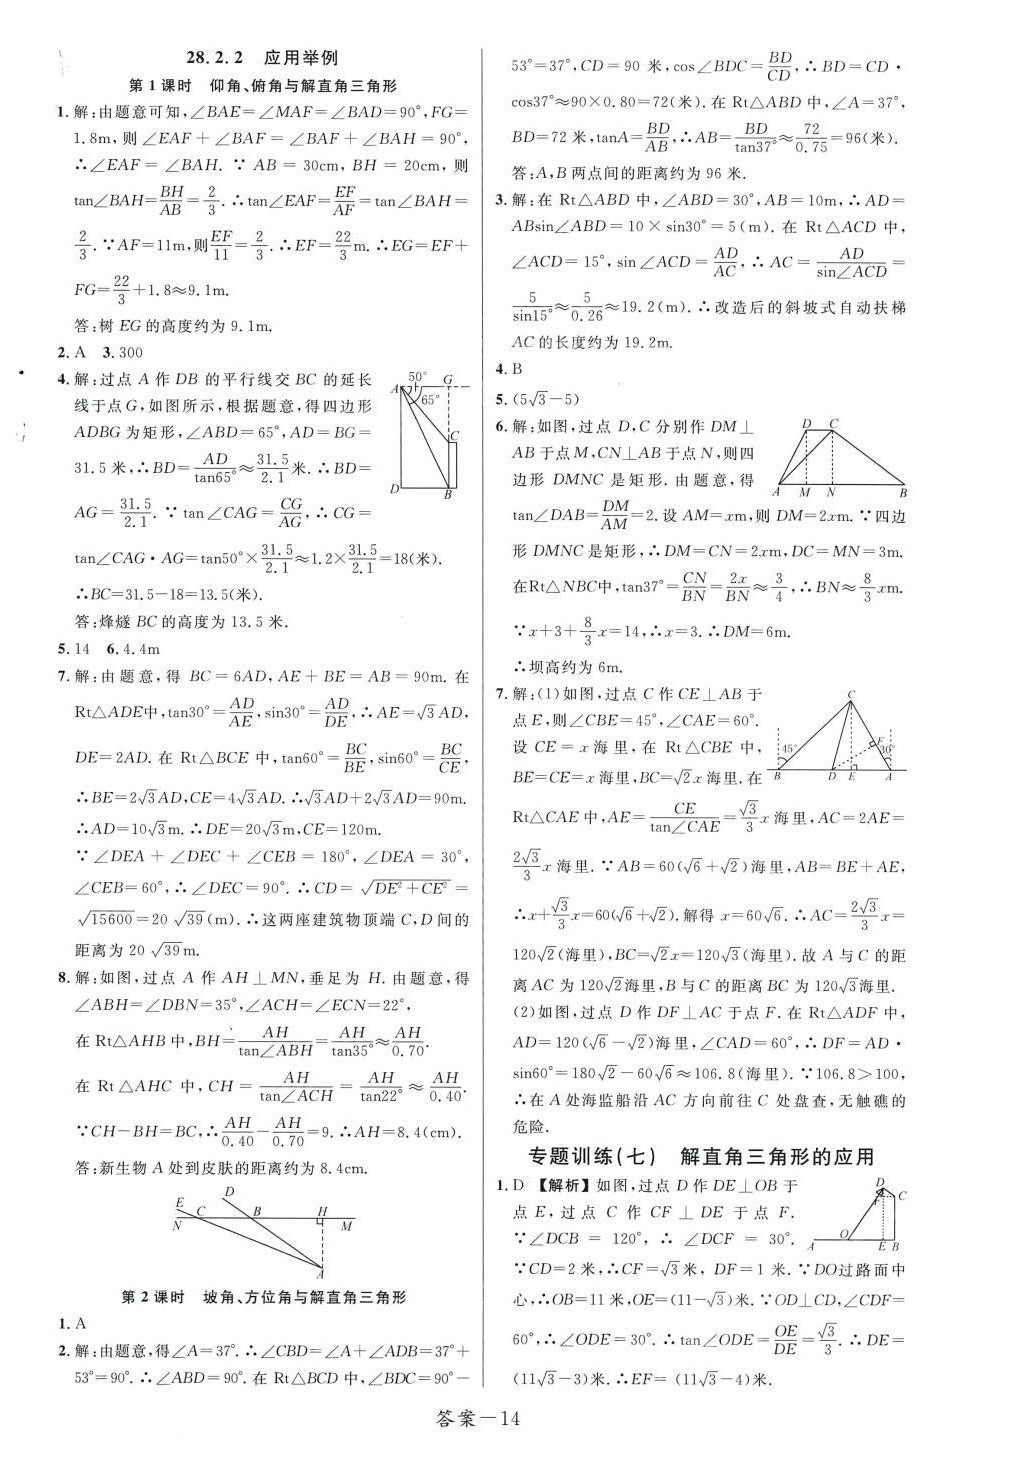 28.2.2 应用举例
第1课时 仰角、俯角与解直角三角形
1.解:由题意可知,∠BAE=∠MAF=∠BAD=90°,FG=
1.8m,则∠EAF+∠BAF=∠BAF+∠BAH=90°,
∴∠EAF=∠BAH.∵AB=30cm,BH=20cm,则
tan∠BAH=BH/AB=2/3.∴tan∠EAF=EF/AF=tan∠BAH=
2/3.∵AF=11m,则EF/11=2/3.∴EF=22/3m.∴EG=EF+
FG=22/3+1.8≈9.1m.
答:树EG的高度约为9.1m.
2.A 3.300
4.解:过点A作DB的平行线交BC的延长
线于点G,如图所示,根据题意,得四边形
ADBG为矩形,∠ABD=65°,AD=BG=
31.5米,∴BD=AD/tan65°≈31.5/2.1米.∴BD=
AG=31.5/2.1.∵tan∠CAG=CG/AG,∴CG=
tan∠CAG·AG=tan50°×31.5/2.1≈1.2×31.5/2.1=18(米).
∴BC=31.5-18=13.5(米).
答:烽燧BC的高度为13.5米.
50° G
A
65°
C
D B
5.14 6.4.4m
7.解:由题意,得BC=6AD,AE+BE=AB=90m.在
Rt△ADE中,tan30°=AD/AE,sin30°=AD/DE,∴AE=√3AD,
DE=2AD.在Rt△BCE中,tan60°=BC/BE,sin60°=BC/CE,
∴BE=2√3AD,CE=4√3AD.∴√3AD+2√3AD=90m.
∴AD=10√3m.∴DE=20√3m,CE=120m.
∵∠DEA+∠DEC+∠CEB=180°,∠DEA=30°,
∠CEB=60°,∴∠DEC=90°.∴CD=√(DE²+CE²)=
√15600=20√39(m).∴这两座建筑物顶端C,D间的
距离为20√39m.
8.解:如图,过点A作AH⊥MN,垂足为H.由题意,得
∠ABH=∠DBN=35°,∠ACH=∠ECN=22°,
在Rt△AHB中,BH=AH/tan∠ABH=AH/tan35°≈AH/0.70.
在Rt△AHC中,CH=AH/tan∠ACH=AH/tan22°≈AH/0.40.
∵CH-BH=BC,∴AH/0.40-AH/0.70=9.∴AH=8.4(cm).
答:新生物A处到皮肤的距离约为8.4cm.
E D
C B H
N M
A
第2课时 坡角、方位角与解直角三角形
1.A
2.解:由题意,得∠A=37°.∴∠CBD=∠A+∠ADB=37°+
53°=90°.∴∠ABD=90°.在Rt△BCD中,∠BDC=90°-
53°=37°,CD=90米,cos∠BDC=BD/CD,∴BD=CD·
cos37°≈90×0.80=72(米).在Rt△ABD中,∠A=37°,
BD=72米,tanA=BD/AB,∴AB=BD/tan37°≈72/0.75=96(米).
答:A,B两点间的距离约为96米.
3.解:在Rt△ABD中,∠ABD=30°,AB=10m,∴AD=
ABsin∠ABD=10×sin30°=5(m).在Rt△ACD中,
∠ACD=15°,sin∠ACD=AD/AC,∴AC=AD/sin∠ACD=
5/sin15°≈5/0.26≈19.2(m).∴改造后的斜坡式自动扶梯
AC的长度约为19.2m.
4.B
5.(5√3-5)
6.解:如图,过点D,C分别作DM⊥
AB于点M,CN⊥AB于点N,则四
边形DMNC是矩形.由题意,得
tan∠DAB=DM/AM=2.设AM=xm,则DM=2xm.∵四边
形DMNC是矩形,∴DM=CN=2xm,DC=MN=3m.
在Rt△NBC中,tan37°=CN/BN=2x/BN≈3/4,∴BN≈8/3xm.
∵x+3+8/3x=14,∴x=3.∴DM=6m.
∴坝高约为6m.
D C
A M N B
7.解:(1)如图,过点C作CE⊥AB于
点E,则∠CBE=45°,∠CAE=60°.
设CE=x海里,在Rt△CBE中,
BE=CE=x海里,BC=√2x海里.在
Rt△CAE中,AE=CE/tan∠CAE=√3/3x海里,AC=2AE=
2√3/3x海里.∵AB=60(√6+√2)海里,AB=BE+AE,
∴x+√3/3x=60(√6+√2).解得x=60√6.∴AC=2√3/3x=
120√2(海里),BC=√2x=120√3(海里).故A与C的距
离AC为120√2海里,B与C的距离BC为120√3海里.
(2)如图,过点D作DF⊥AC于点F.在Rt△ADF中,
AD=120(√6-√2)海里,∠CAD=60°,∴DF=AD·
sin60°=180√2-60√6≈106.8(海里).∵106.8>100,
∴在A处海监船沿AC方向前往C处盘查,无触礁的
危险.
C
45° F 30°
B D E A
专题训练(七) 解直角三角形的应用
1.D 【解析】如图,过点D作DE⊥OB于
点E,过点C作CF⊥DE于点F.
∵∠DCB=120°,∴∠DCF=30°.
∵CD=2米,∴CF=√3米,DF=1米.∵DO过路面中
心,∴OB=11米,OE=(11-√3)米.∵OD⊥CD,∠CDF=
60°,∴∠ODE=30°.∴tan∠ODE=OE/DE=√3/3.∴DE=
(11√3-3)米.∴EF=(11√3-4)米.
D
C
O
A E B
答案-14